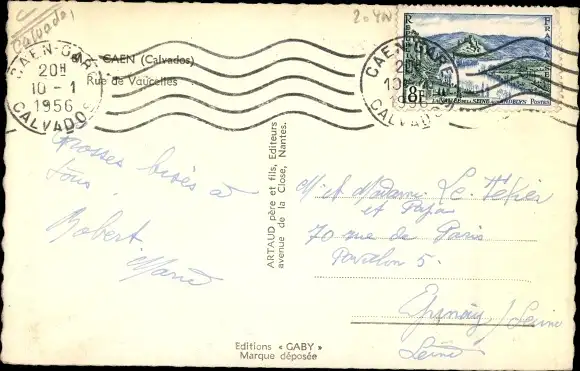 Calvados
20 4N
CAEN-GARE
20H
10 - 1
1956
CALVADOS
CAEN (Calvados)
Rue de Vaucelles
Grosses bises à
tous.
Robert
Marie
ARTAUD père et fils, Editeurs
avenue de la Close, Nantes.
Editions « GABY »
Marque déposée
CAEN-GARE
20H
10
1956
CALVADOS
8F
VALLÉE DE LA SEINE AUX ANDELYS POSTES
M et Madame Le
et Papa
70 rue de Paris
Pavillon 5.
Epinay / Seine
Seine